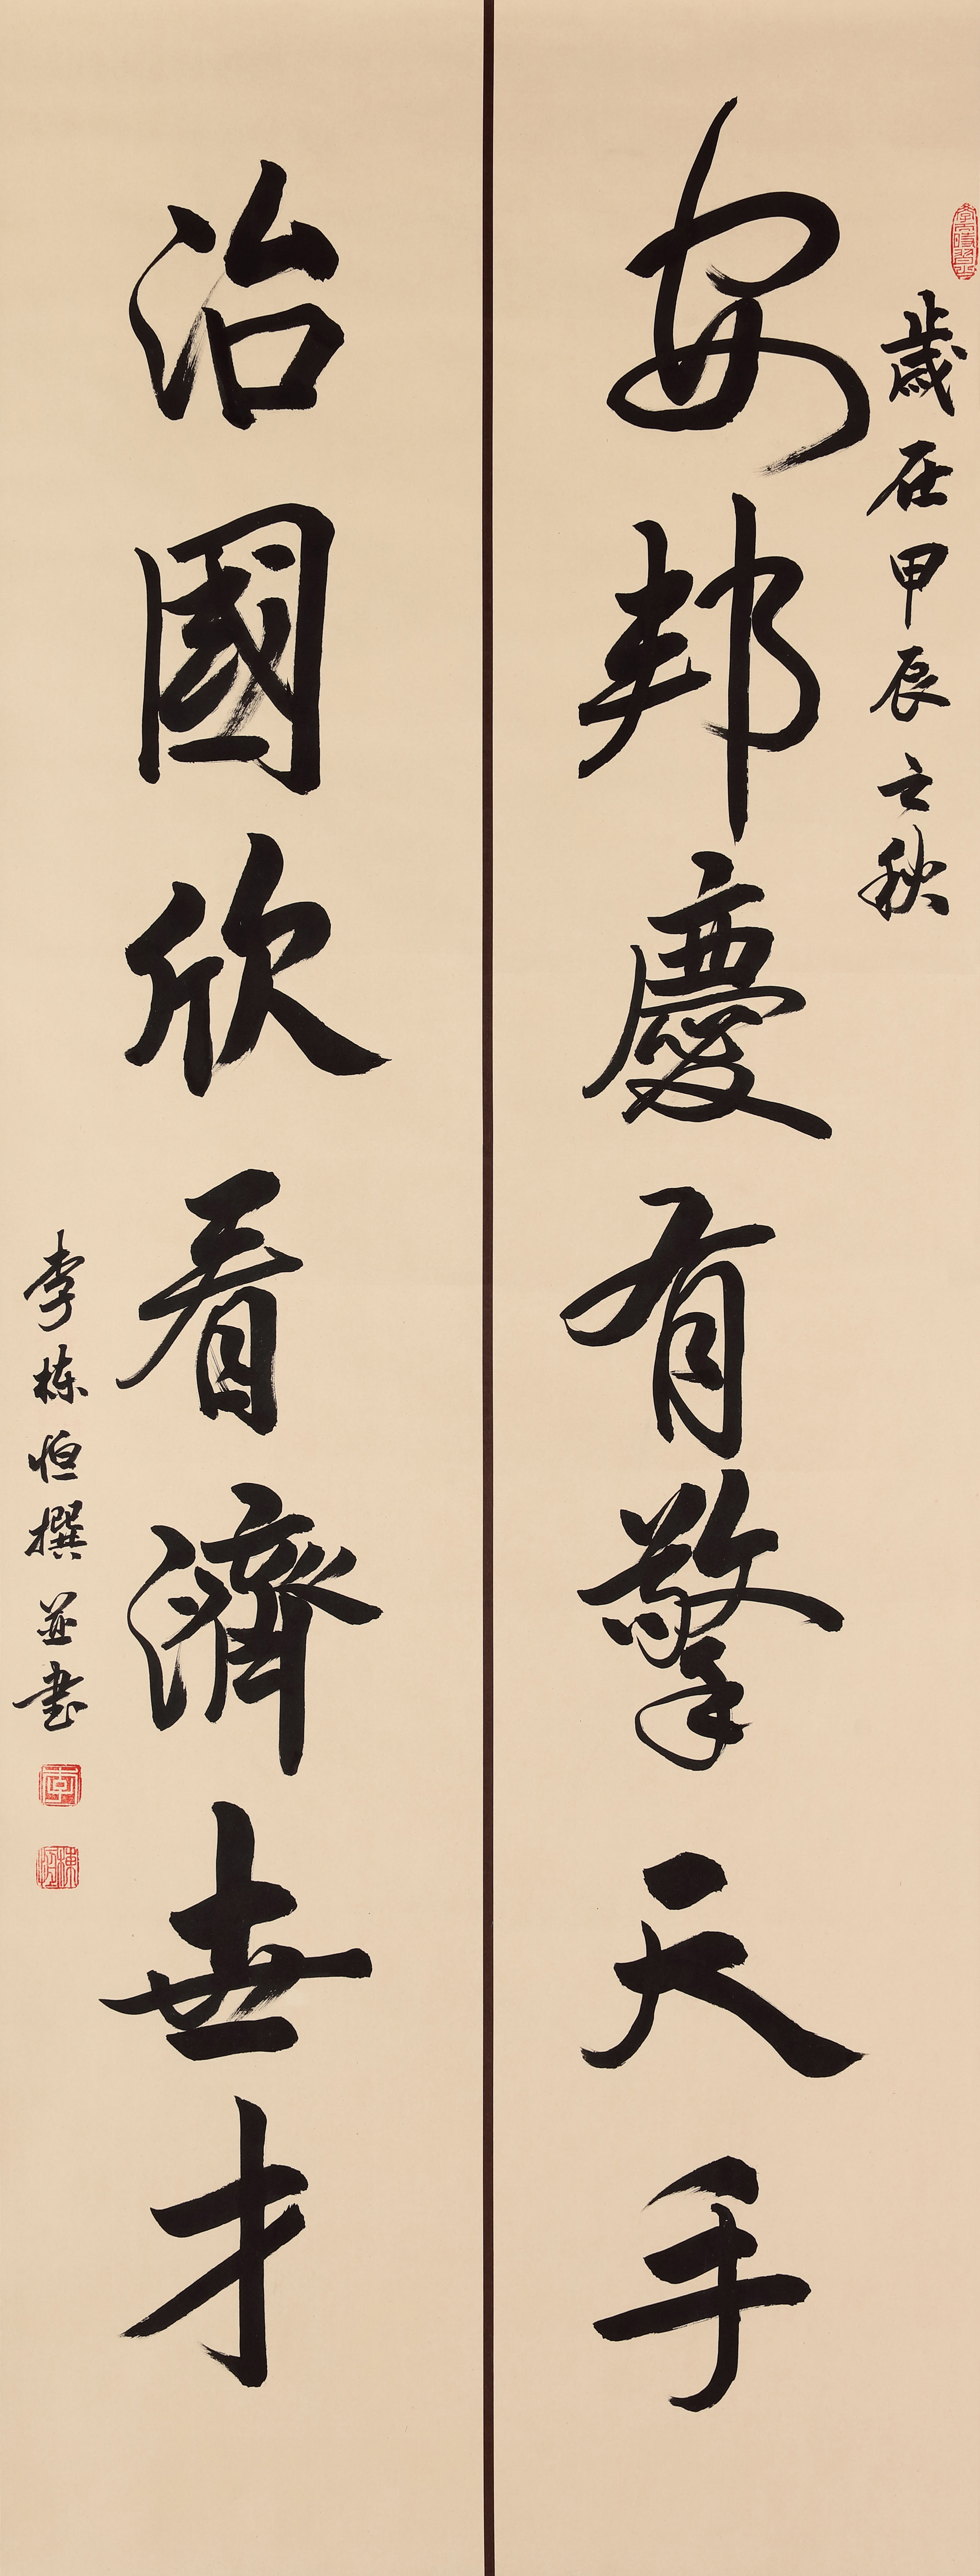 歲在甲辰之秋
安邦慶有擎天手
治國欣看濟世才
李栋恒撰並书